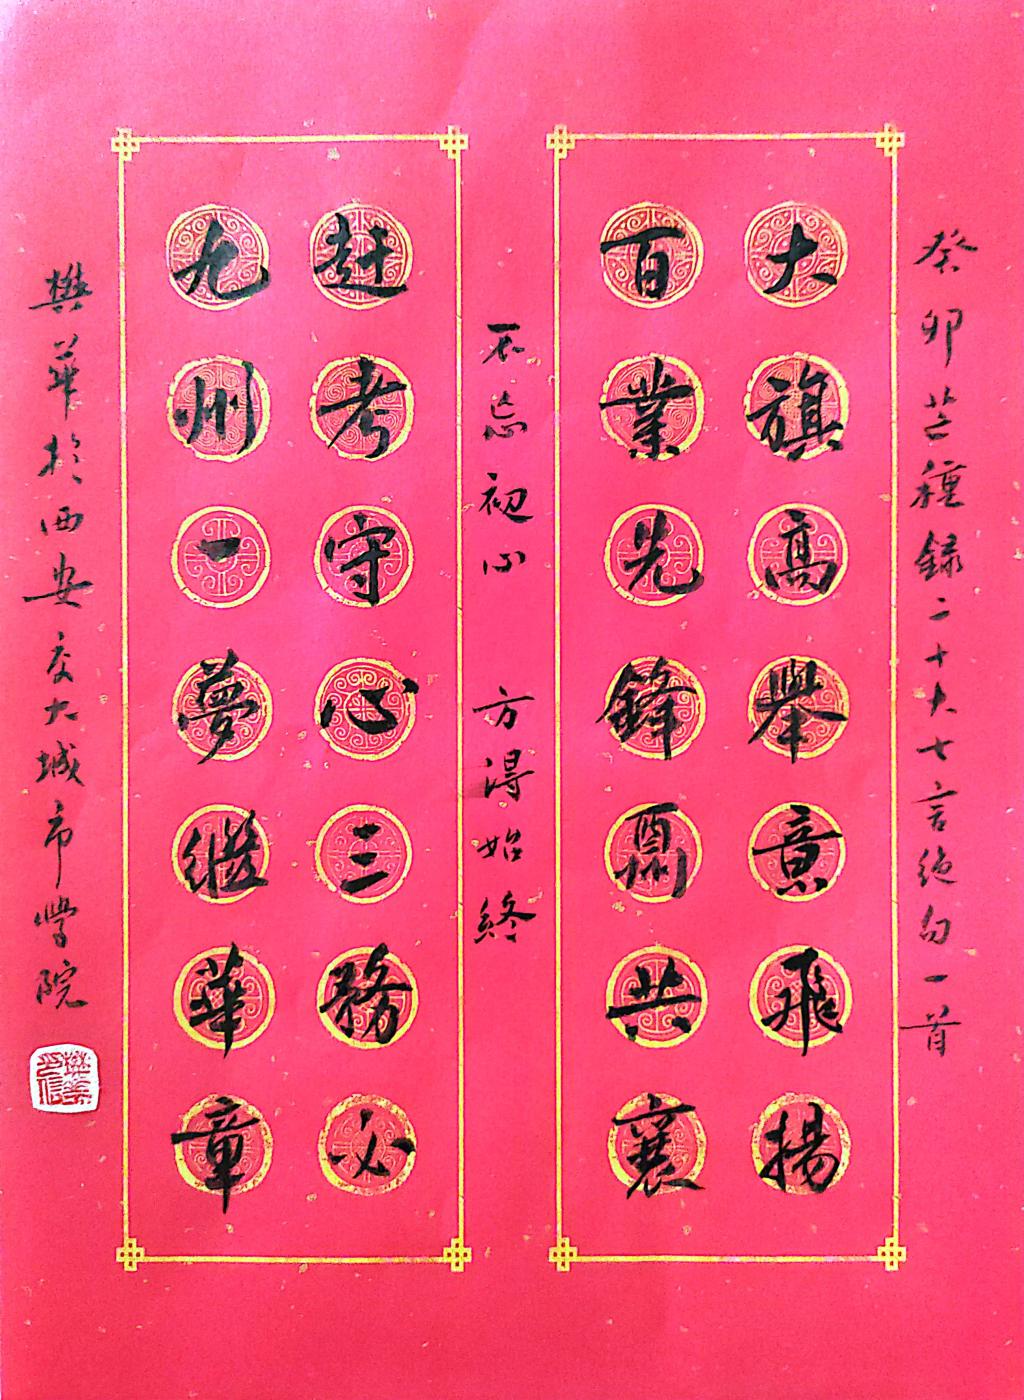 癸卯芒種録二十大七言绝句一首
大旗高舉意飛揚
百業先鋒鬭共襄
不忘初心 方得始終
赶考守心三務必
九州一夢繼華章
樊華於西安交大城市學院
樊華印信